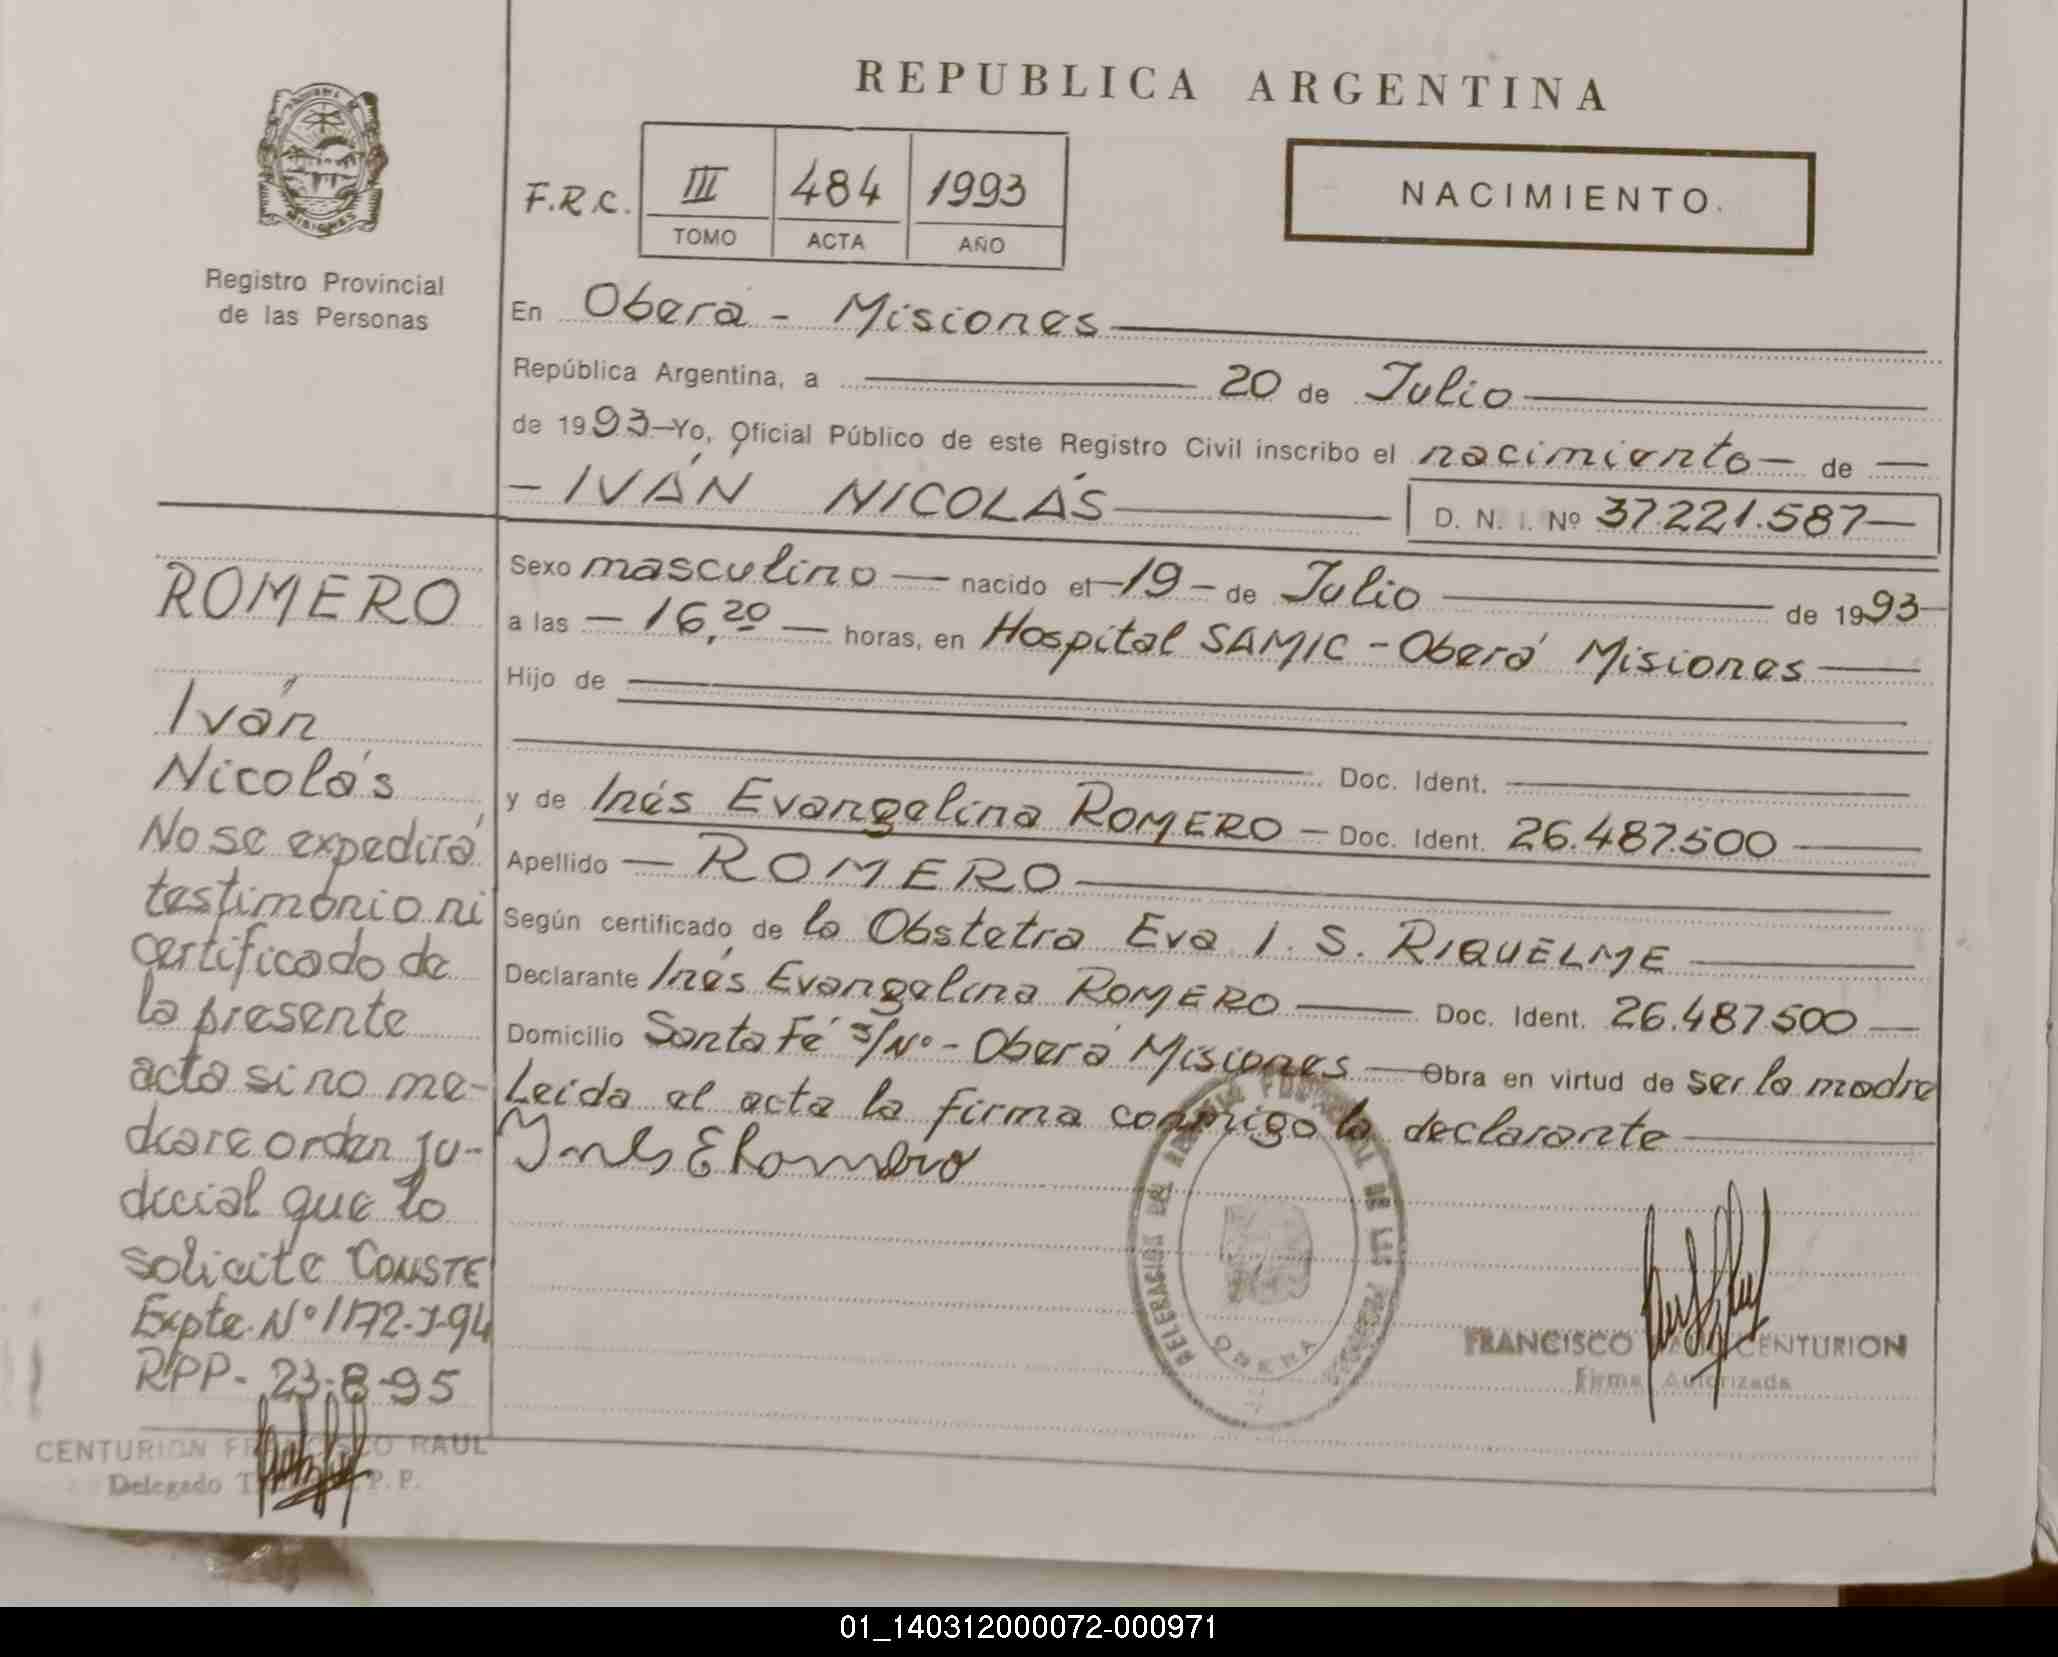 REPUBLICA ARGENTINA
NACIMIENTO.
F.R.C. III 484 1993
TOMO ACTA AÑO
PROVINCIA DE
MISIONES
Registro Provincial
de las Personas
En Oberá - Misiones
República Argentina, a 20 de Julio
de 1993 Yo, Oficial Público de este Registro Civil inscribo el nacimiento de
IVÁN NICOLÁS D. N. I. Nº 37.221.587
Sexo masculino nacido el 19 de Julio de 1993
a las 16,20 horas, en Hospital SAMIC - Oberá Misiones
Hijo de
Doc. Ident.
y de Inés Evangelina ROMERO Doc. Ident. 26.487.500
Apellido ROMERO
Según certificado de la Obstetra Eva I. S. RIQUELME
Declarante Inés Evangelina ROMERO Doc. Ident. 26.487.500
Domicilio Santa Fé s/Nº - Oberá Misiones Obra en virtud de ser la madre
Leida el acta la firma conmigo la declarante
Ines E Romero
OBERA
FRANCISCO CENTURION
Firma Autorizada
ROMERO
Iván
Nicolás
No se expedirá
testimonio ni
certificado de
la presente
acta si no me-
diare orden ju-
dicial que lo
solicite CONSTE
Expte. Nº 1172-J-94
RPP- 23-8-95
CENTURION FRANCISCO RAUL
Delegado
01_140312000072-000971